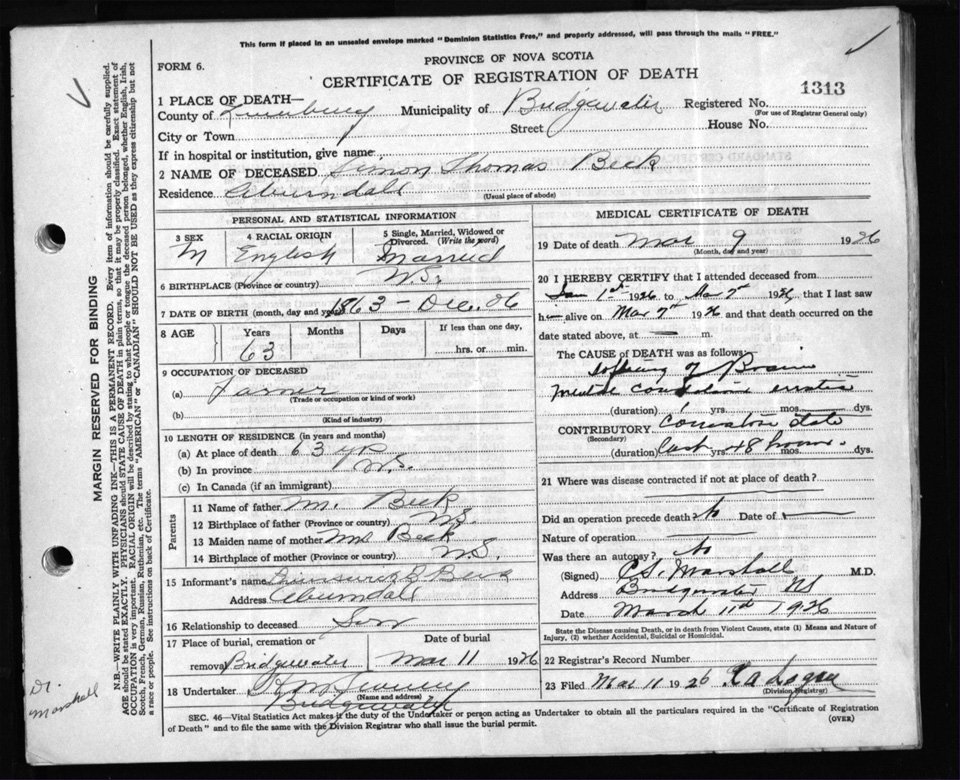 This form if placed in an unsealed envelope marked "Dominion Statistics Free," and properly addressed, will pass through the mails "FREE."
FORM 6.
PROVINCE OF NOVA SCOTIA
CERTIFICATE OF REGISTRATION OF DEATH
1313
1 PLACE OF DEATH—
County of Lunenburg Municipality of Bridgewater Registered No.
(For use of Registrar General only)
City or Town Street House No.
If in hospital or institution, give name
2 NAME OF DECEASED Thomas Beck
Residence
(Usual place of abode)
PERSONAL AND STATISTICAL INFORMATION
3 SEX M
4 RACIAL ORIGIN English
5 Single, Married, Widowed or Divorced. (Write the word) Married
6 BIRTHPLACE (Province or country) N.S.
7 DATE OF BIRTH (month, day and year) 1863 - Dec. 26
8 AGE Years 63 Months Days If less than one day, hrs. or min.
9 OCCUPATION OF DECEASED
(a) Farmer
(Trade or occupation or kind of work)
(b)
(Kind of industry)
10 LENGTH OF RESIDENCE (in years and months)
(a) At place of death 63 yrs
(b) In province N.S.
(c) In Canada (if an immigrant)
Parents
11 Name of father M. Beck
12 Birthplace of father (Province or country) N.S.
13 Maiden name of mother Beck
14 Birthplace of mother (Province or country) N.S.
15 Informant's name Beck
Address
16 Relationship to deceased Son
17 Place of burial, cremation or removal Bridgewater
Date of burial Mar 11 1926
18 Undertaker
(Name and address)
Bridgewater
MEDICAL CERTIFICATE OF DEATH
19 Date of death Mar 9 1926
(Month, day and year)
20 I HEREBY CERTIFY that I attended deceased from
Jan 1st 1926 to Mar 7th 1926, that I last saw
h alive on Mar 7th 1926 and that death occurred on the
date stated above, at — m.
The CAUSE OF DEATH was as follows:
Softening of Brain
(duration) 1 yrs. mos. dys.
CONTRIBUTORY state
(Secondary)
(duration) last 48 hours. yrs. mos. dys.
21 Where was disease contracted if not at place of death?
Did an operation precede death? No Date of —
Nature of operation —
Was there an autopsy? No
(Signed) C.S. Marshall M.D.
Address Bridgewater NS
Date March 11th 1926
State the Disease causing Death, or in death from Violent Causes, state (1) Means and Nature of
Injury, (2) whether Accidental, Suicidal or Homicidal.
22 Registrar's Record Number
23 Filed Mar 11 1926
(Division Registrar)
SEC. 46—Vital Statistics Act makes it the duty of the Undertaker or person acting as Undertaker to obtain all the particulars required in the "Certificate of Registration
of Death" and to file the same with the Division Registrar who shall issue the burial permit. (OVER)
MARGIN RESERVED FOR BINDING
N.B.—WRITE PLAINLY WITH UNFADING INK—THIS IS A PERMANENT RECORD. Every item of information should be carefully supplied.
AGE should be stated EXACTLY. PHYSICIANS should STATE CAUSE OF DEATH in plain terms, so that it may be properly classified. Exact statement of
OCCUPATION is very important. RACIAL ORIGIN will be described by stating to what people or tongue the deceased person belonged, whether English, Irish,
Scotch, French, German, Russian, Ruthenian, etc. The terms "AMERICAN" or "CANADIAN" SHOULD NOT BE USED as they express citizenship but not
a race or people. See instructions on back of Certificate.
Dr.
Marshall